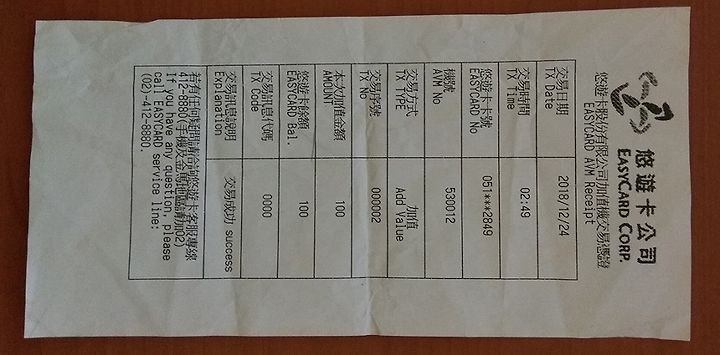 悠遊卡公司
EASYCARD CORP.
悠遊卡股份有限公司加值機交易憑證
EASYCARD AVM Receipt
交易日期 2018/12/24
TX Date
交易時間 02:49
TX Time
悠遊卡卡號 051***2849
EASYCARD No
機號 530012
AVM No
交易方式 加值
TX TYPE Add Value
交易序號 000002
TX No
本次加值金額 100
AMOUNT
悠遊卡餘額 100
EASYCARD Bal.
交易訊息代碼 0000
TX Code
交易訊息說明 交易成功 success
Explanation
若有任何疑問請洽詢悠遊卡客服專線
412-8880(手機及金馬地區請加02)
If you have any question, please
call EASYCARD service line:
(02)-412-8880.